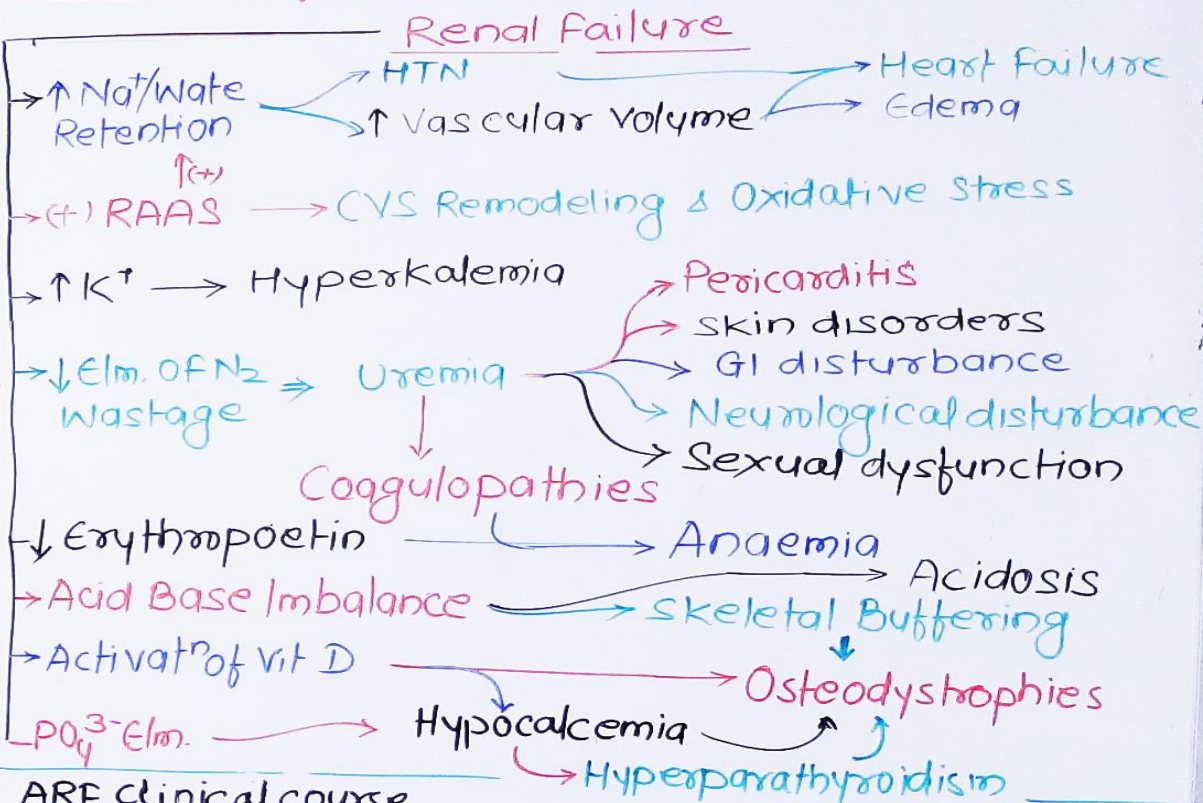 Renal Failure
→ ↑ Na⁺/Wate Retention → HTN → Heart Failure
→ ↑ Vascular volume → Edema
↑(+)
→ (+) RAAS → CVS Remodeling & Oxidative Stress
→ ↑ K⁺ → Hyperkalemia
→ ↓ Elm. Of N₂ Wastage ⇒ Uremia
→ Pericarditis
→ Skin disorders
→ GI disturbance
→ Neurological disturbance
→ Sexual dysfunction
↓
Coagulopathies
↓ Erythropoetin → Anaemia
→ Acid Base Imbalance → Acidosis
→ Skeletal Buffering
↓
→ Activatⁿ of Vit D → Osteodystrophies
PO₄³⁻ Elm. → Hypocalcemia
→ Hyperparathyroidism
ARF Clinical course